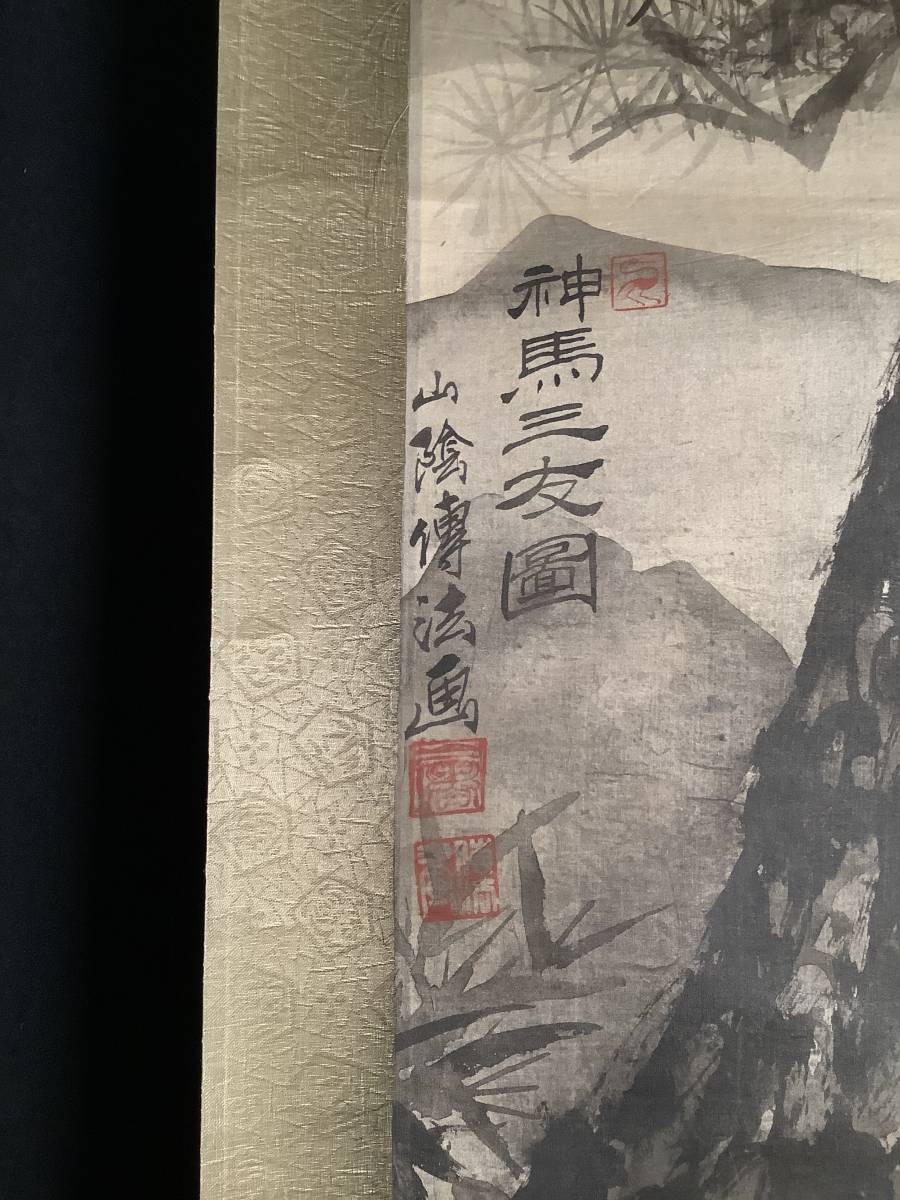 神馬三友圖
山陰傳法画